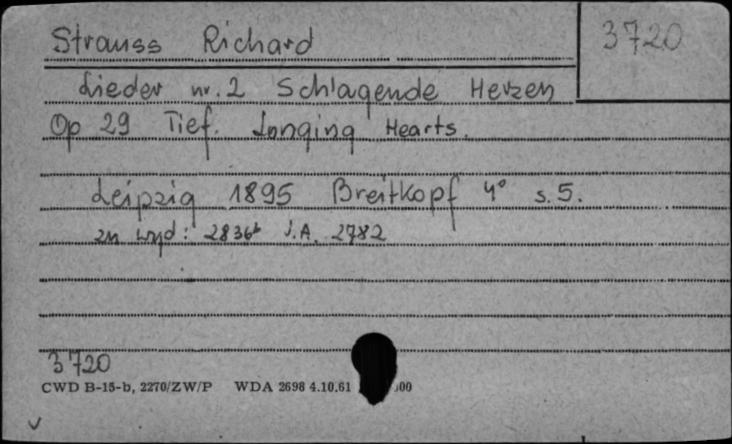 Strauss Richard
3720
Lieder nr. 2 Schlagende Herzen
Op 29 Tief. Longing Hearts.
Leipzig 1895 Breitkopf 4° s. 5.
zn wyd: 2836b J.A. 2782
3720
CWD B-15-b, 2270/ZW/P WDA 2698 4.10.61